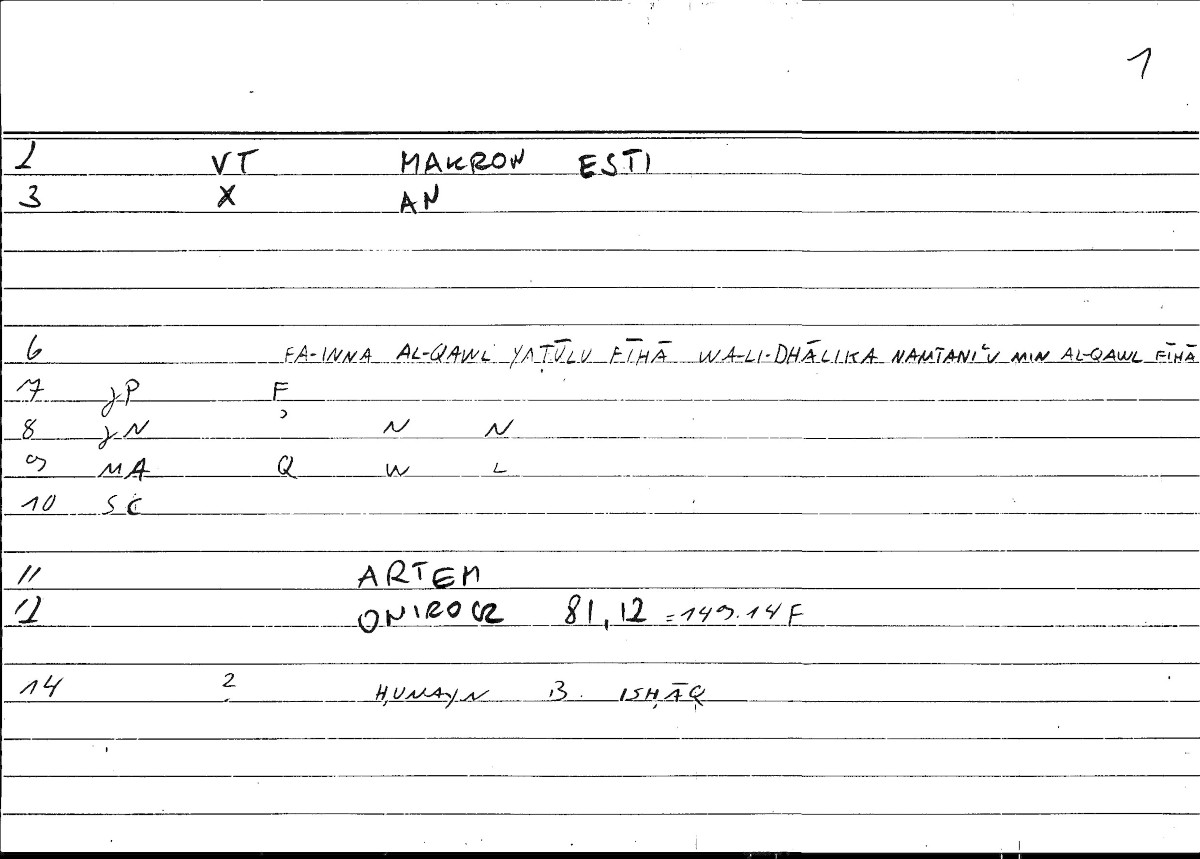 1
2 VT MAKRON ESTI
3 X AN
6 FA-INNA AL-QAWL YAṬŪLU FĪHĀ WA-LI-DHĀLIKA NAMTANIʿU MIN AL-QAWL FĪHĀ
7 JP F
8 JN ʾ N N
9 MA Q W L
10 SC
11 ARTEM
12 ONIROCR 81,12 = 149.14 F
14 2 ḤUNAYN B. ISḤĀQ